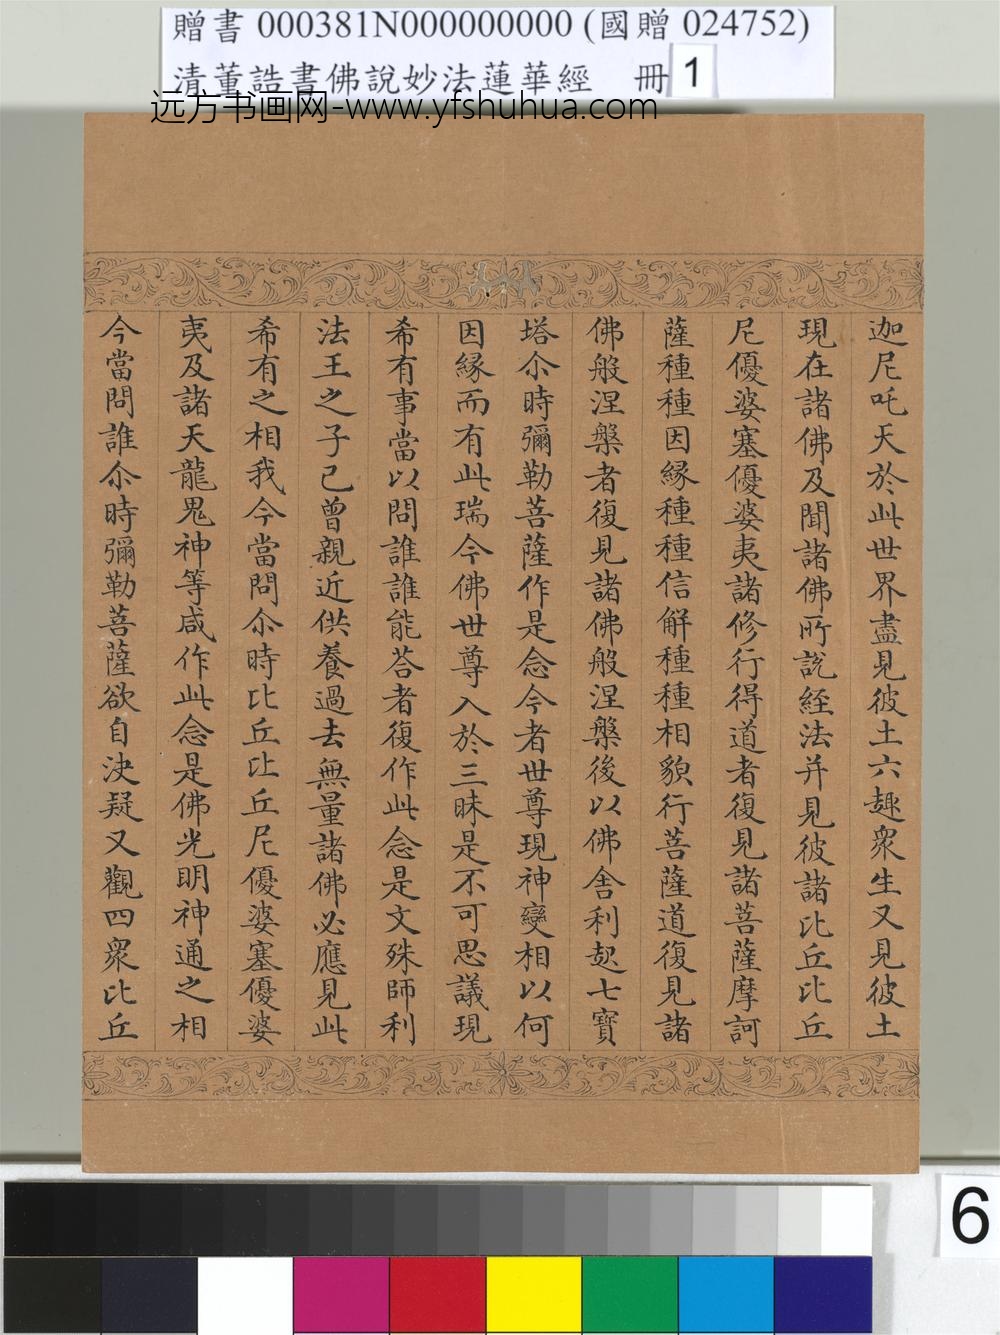 贈書 000381N000000000 (國贈 024752)
清董誥書佛說妙法蓮華經 冊 1
远方书画网-www.yfshuhua.com
迦尼吒天於此世界盡見彼土六趣衆生又見彼土
現在諸佛及聞諸佛所說經法并見彼諸比丘比丘
尼優婆塞優婆夷諸修行得道者復見諸菩薩摩訶
薩種種因縁種種信解種種相貌行菩薩道復見諸
佛般涅槃者復見諸佛般涅槃後以佛舍利起七寶
塔尒時彌勒菩薩作是念今者世尊現神變相以何
因縁而有此瑞今佛世尊入於三昧是不可思議現
希有事當以問誰誰能荅者復作此念是文殊師利
法王之子已曾親近供養過去無量諸佛必應見此
希有之相我今當問尒時比丘比丘尼優婆塞優婆
夷及諸天龍鬼神等咸作此念是佛光明神通之相
今當問誰尒時彌勒菩薩欲自決疑又觀四衆比丘
6